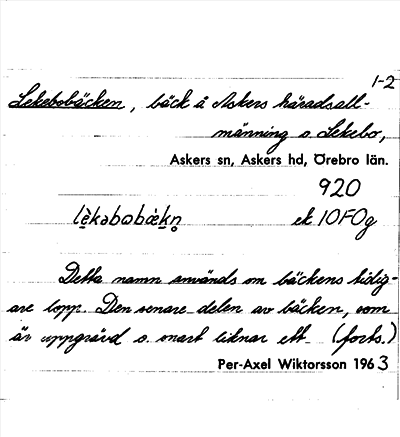 1-2
Lekebobäcken, bäck å Askers häradsall-
männing o. Lekebo,
Askers sn, Askers hd, Örebro län.
920
lè̱kəbobæ̀ḵn̥ ek 10F0g
Detta namn används om bäckens tidig-
are lopp. Den senare delen av bäcken, som
är uppgrävd o. snart liknar ett (forts.)
Per-Axel Wiktorsson 1963